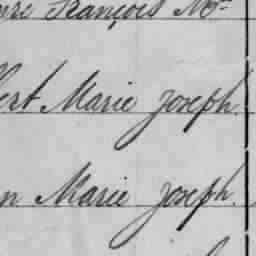 François M
Marie Joseph
Marie Joseph.